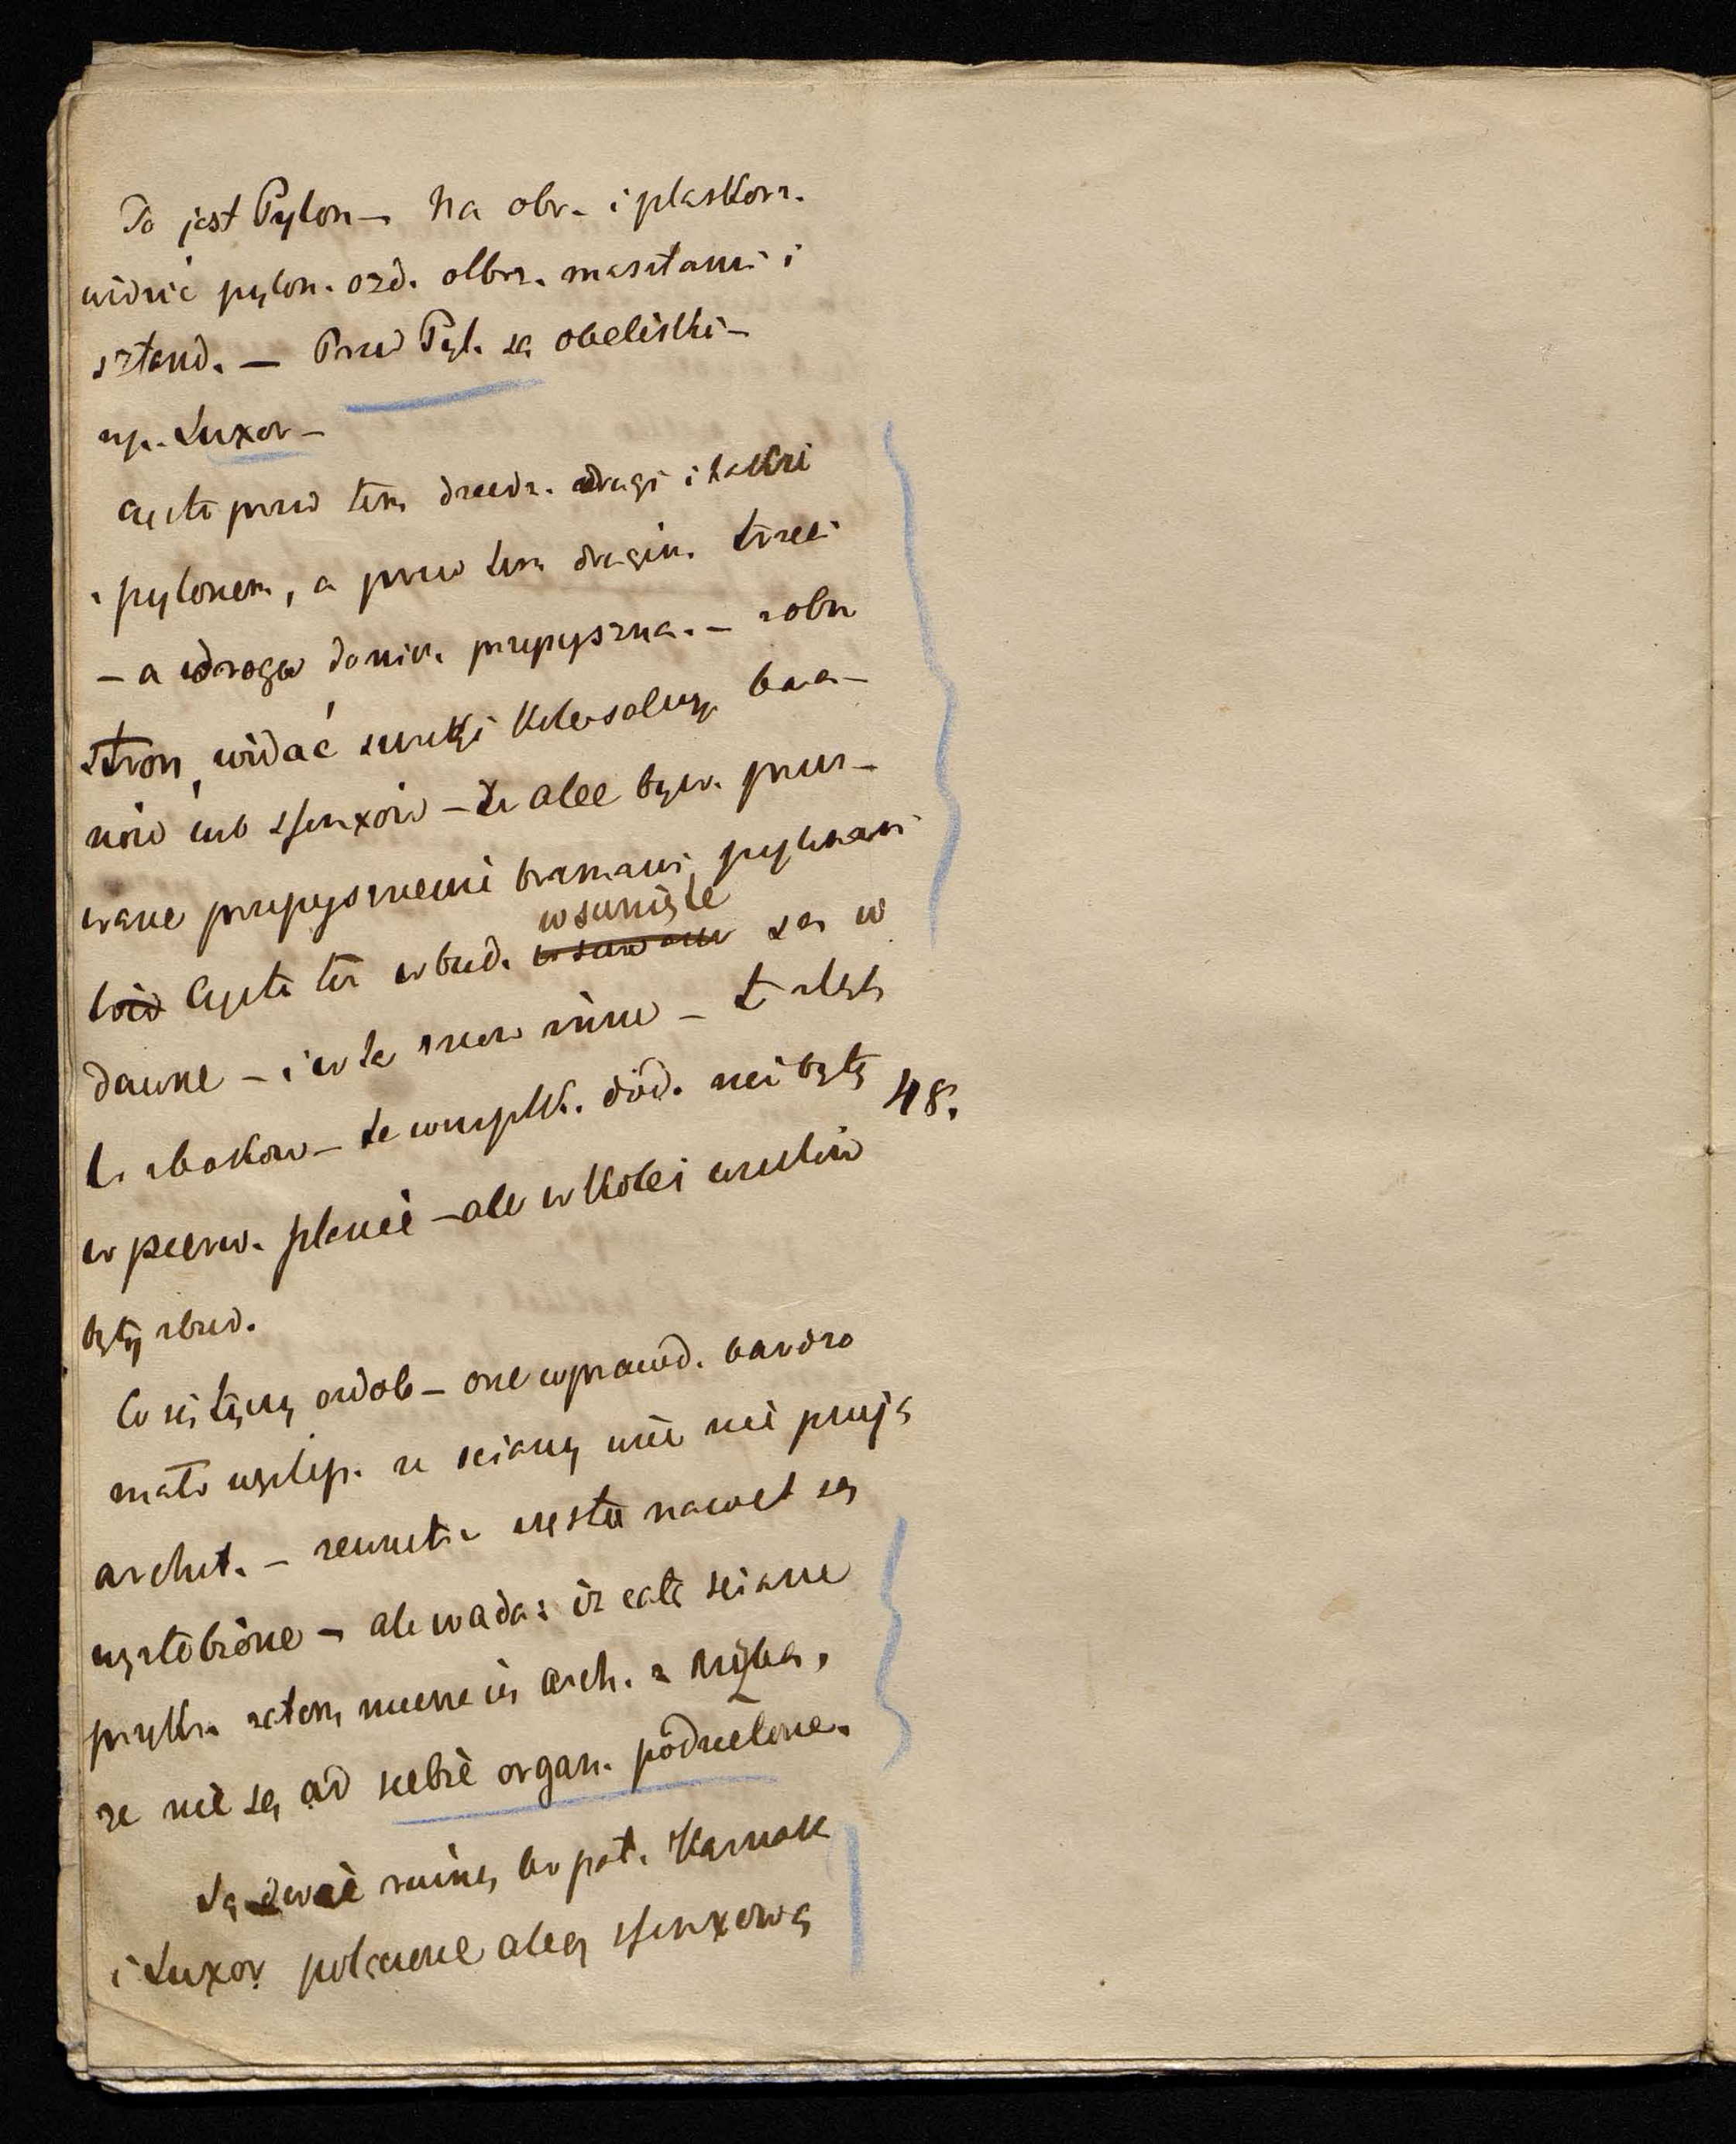 To jest Pylon — Na obr. i płaskorz.
widzić pylon. ozd. olbrz. masztami i
sztand. — Przed Pyl. są obeliski —
np. Luxor —
Często przed tem dziedz. drugi i także
z pylonem, a przed tem drugim. trzeci
— a droga do nich przepyszna. — z obu
stron widać szereg kolosalny bara-
nów lub sfinxów — te alee byw. przer-
wane przepysznemi bramami, pylonami
Często też w bud. wsunięte są w
dawne — i w te znow inne — z tyłu
z boków — te wszystk. dod. nie były
48.
w pierw. planie — ale w kolei wieków
były zbud.
Co się tyczy ozdob — one wprawd. bardzo
mało występ. ze ściany więc nie psują
archit. — zewnątrz często nawet są
wyżłobione — ale wada: iż całą ścianę
przykr. zatem miesza się arch. z rzeźbą,
że nie są od siebie organ. podzielone.
Są dwie ruiny bo pał. Karnak
i Luxor połączone aleą sfinxową